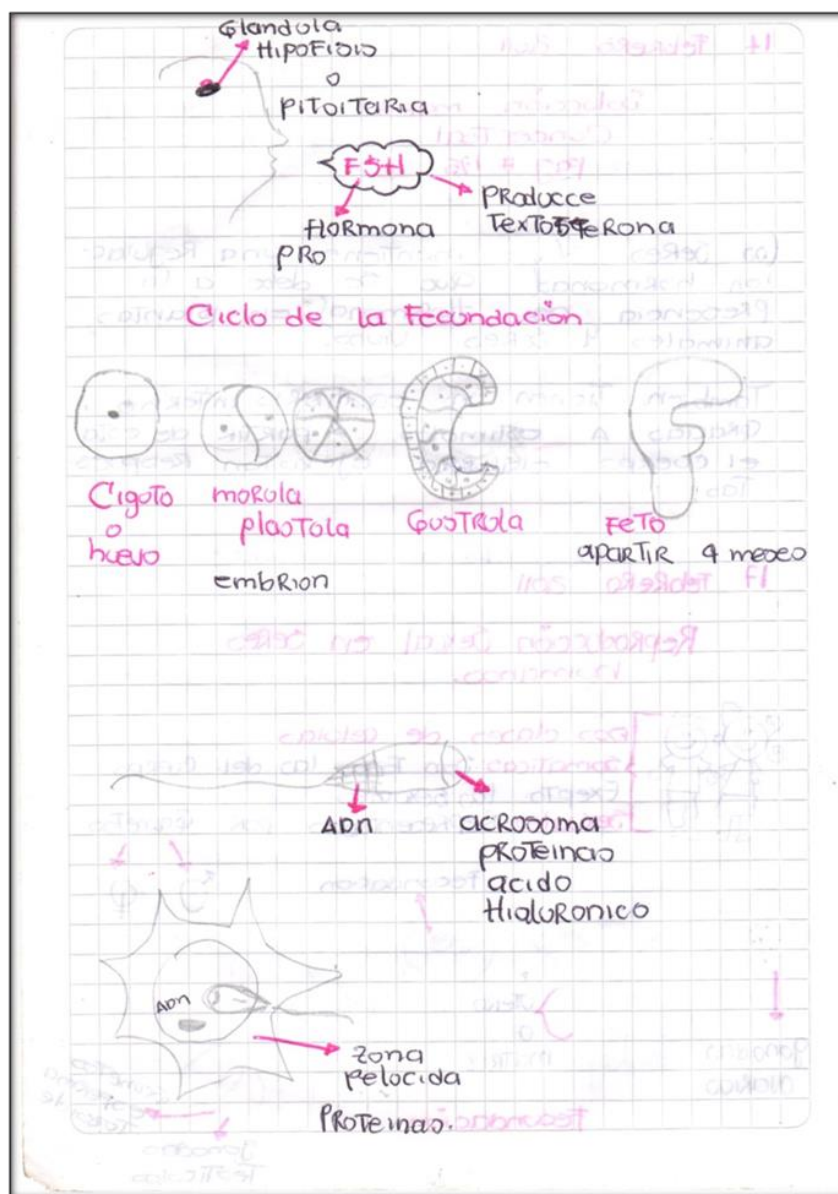 Glandula
HIPOFISIS
o
PITOITARIA
FSH
PRODUCCE
TEXTOSTERONA
HORMONA
PRO
Ciclo de la Fecundación
Cigoto
o
huevo
morula
plastola
embrion
GUSTRULA
FETO
APARTIR 4 meses
ADN
acrosoma
proteinas
acido
Hialuronico
ADN
zona
pelocida
PROTEINAS.